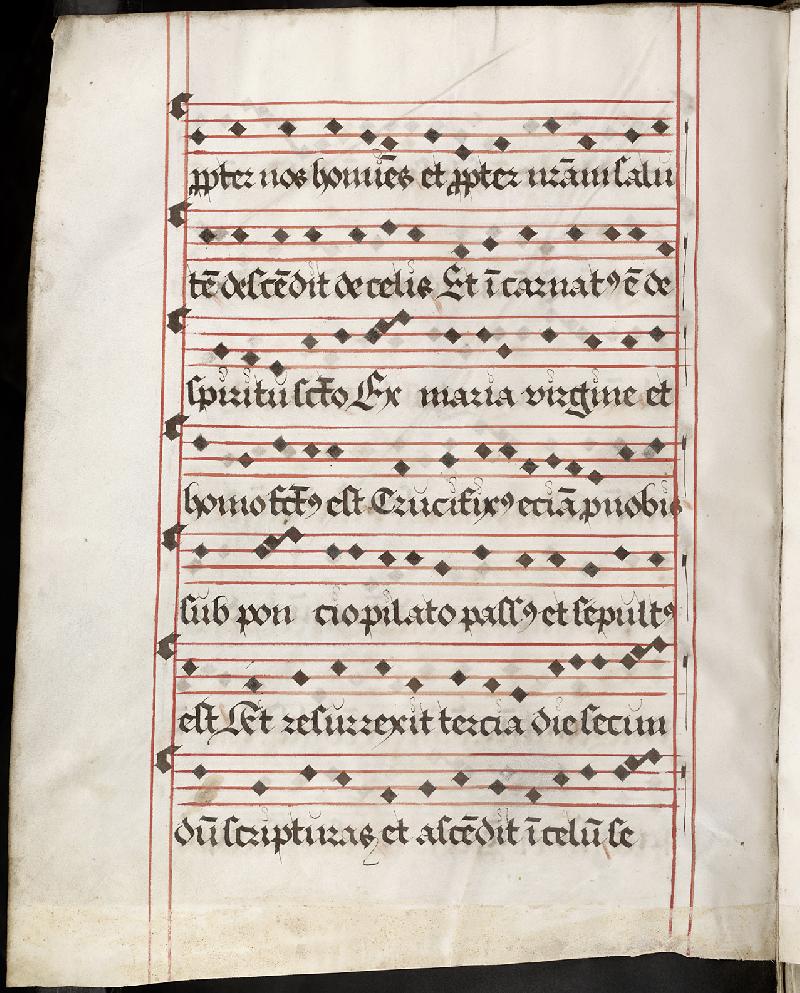 ꝓpter nos homīes et ꝓpter nr̄am salu
tē descēdit de celis Et īcarnatꝰ ē de
spiritu sc̄to Ex maria virgine et
homo fc̄tꝰ est Crucifixꝰ eciā pnobis
sub pon cio pilato passꝰ et sepultꝰ
est Et resurrexit tercia die secun
dū scripturas et ascēdit ī celū se